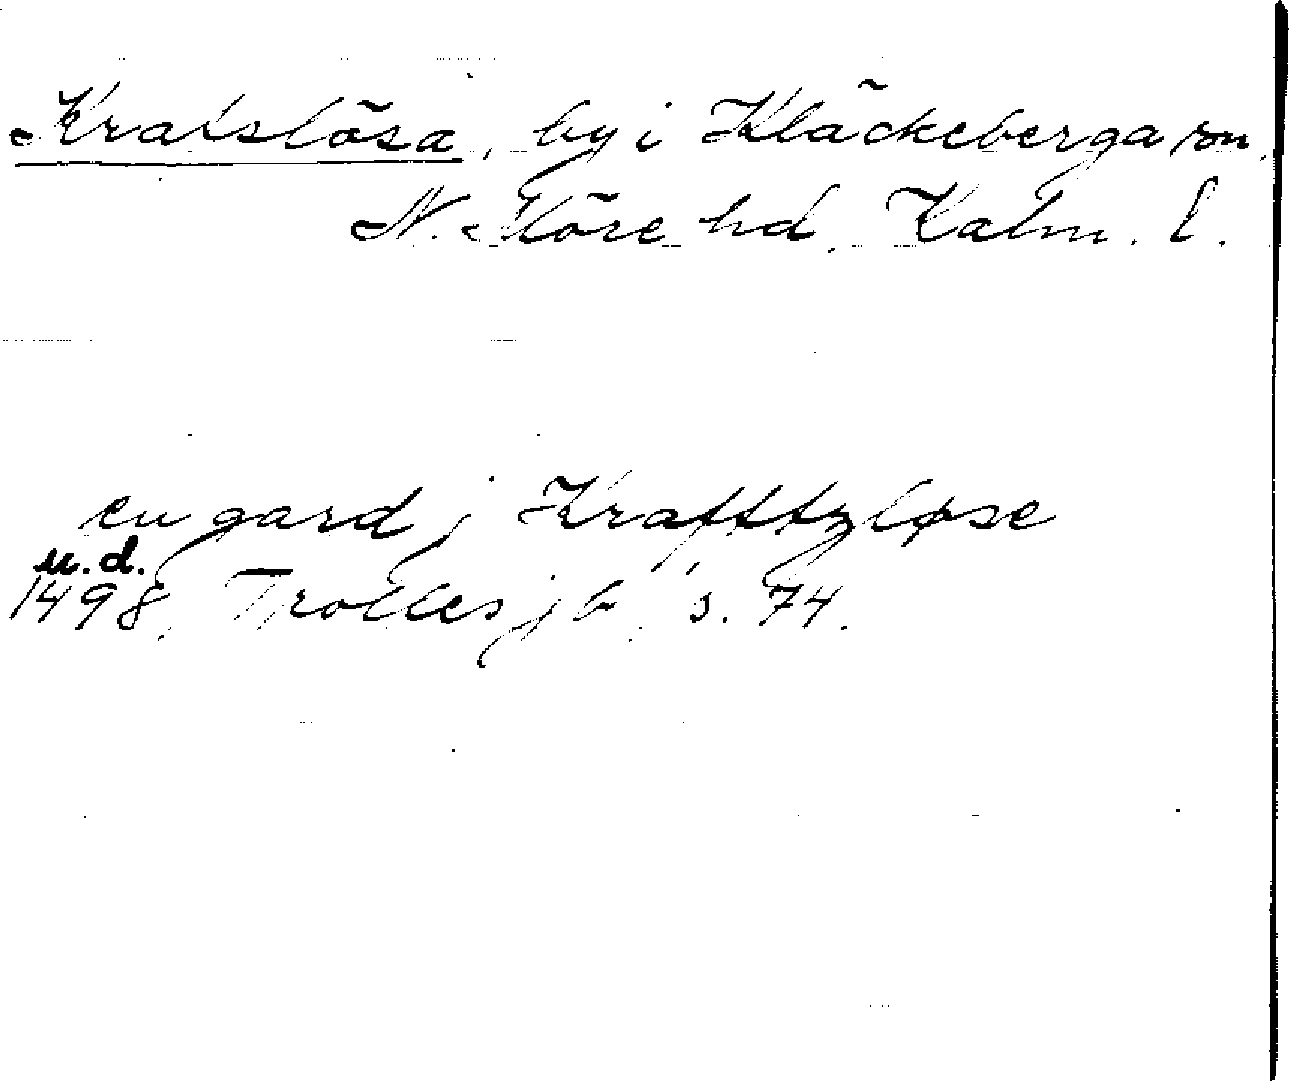 Kratslösa, by i Kläckeberga sn,
N. Möre hd, Kalm. l.
en gard j Krafttzløse
u.d.
1498, Trolles jb, s. 74.